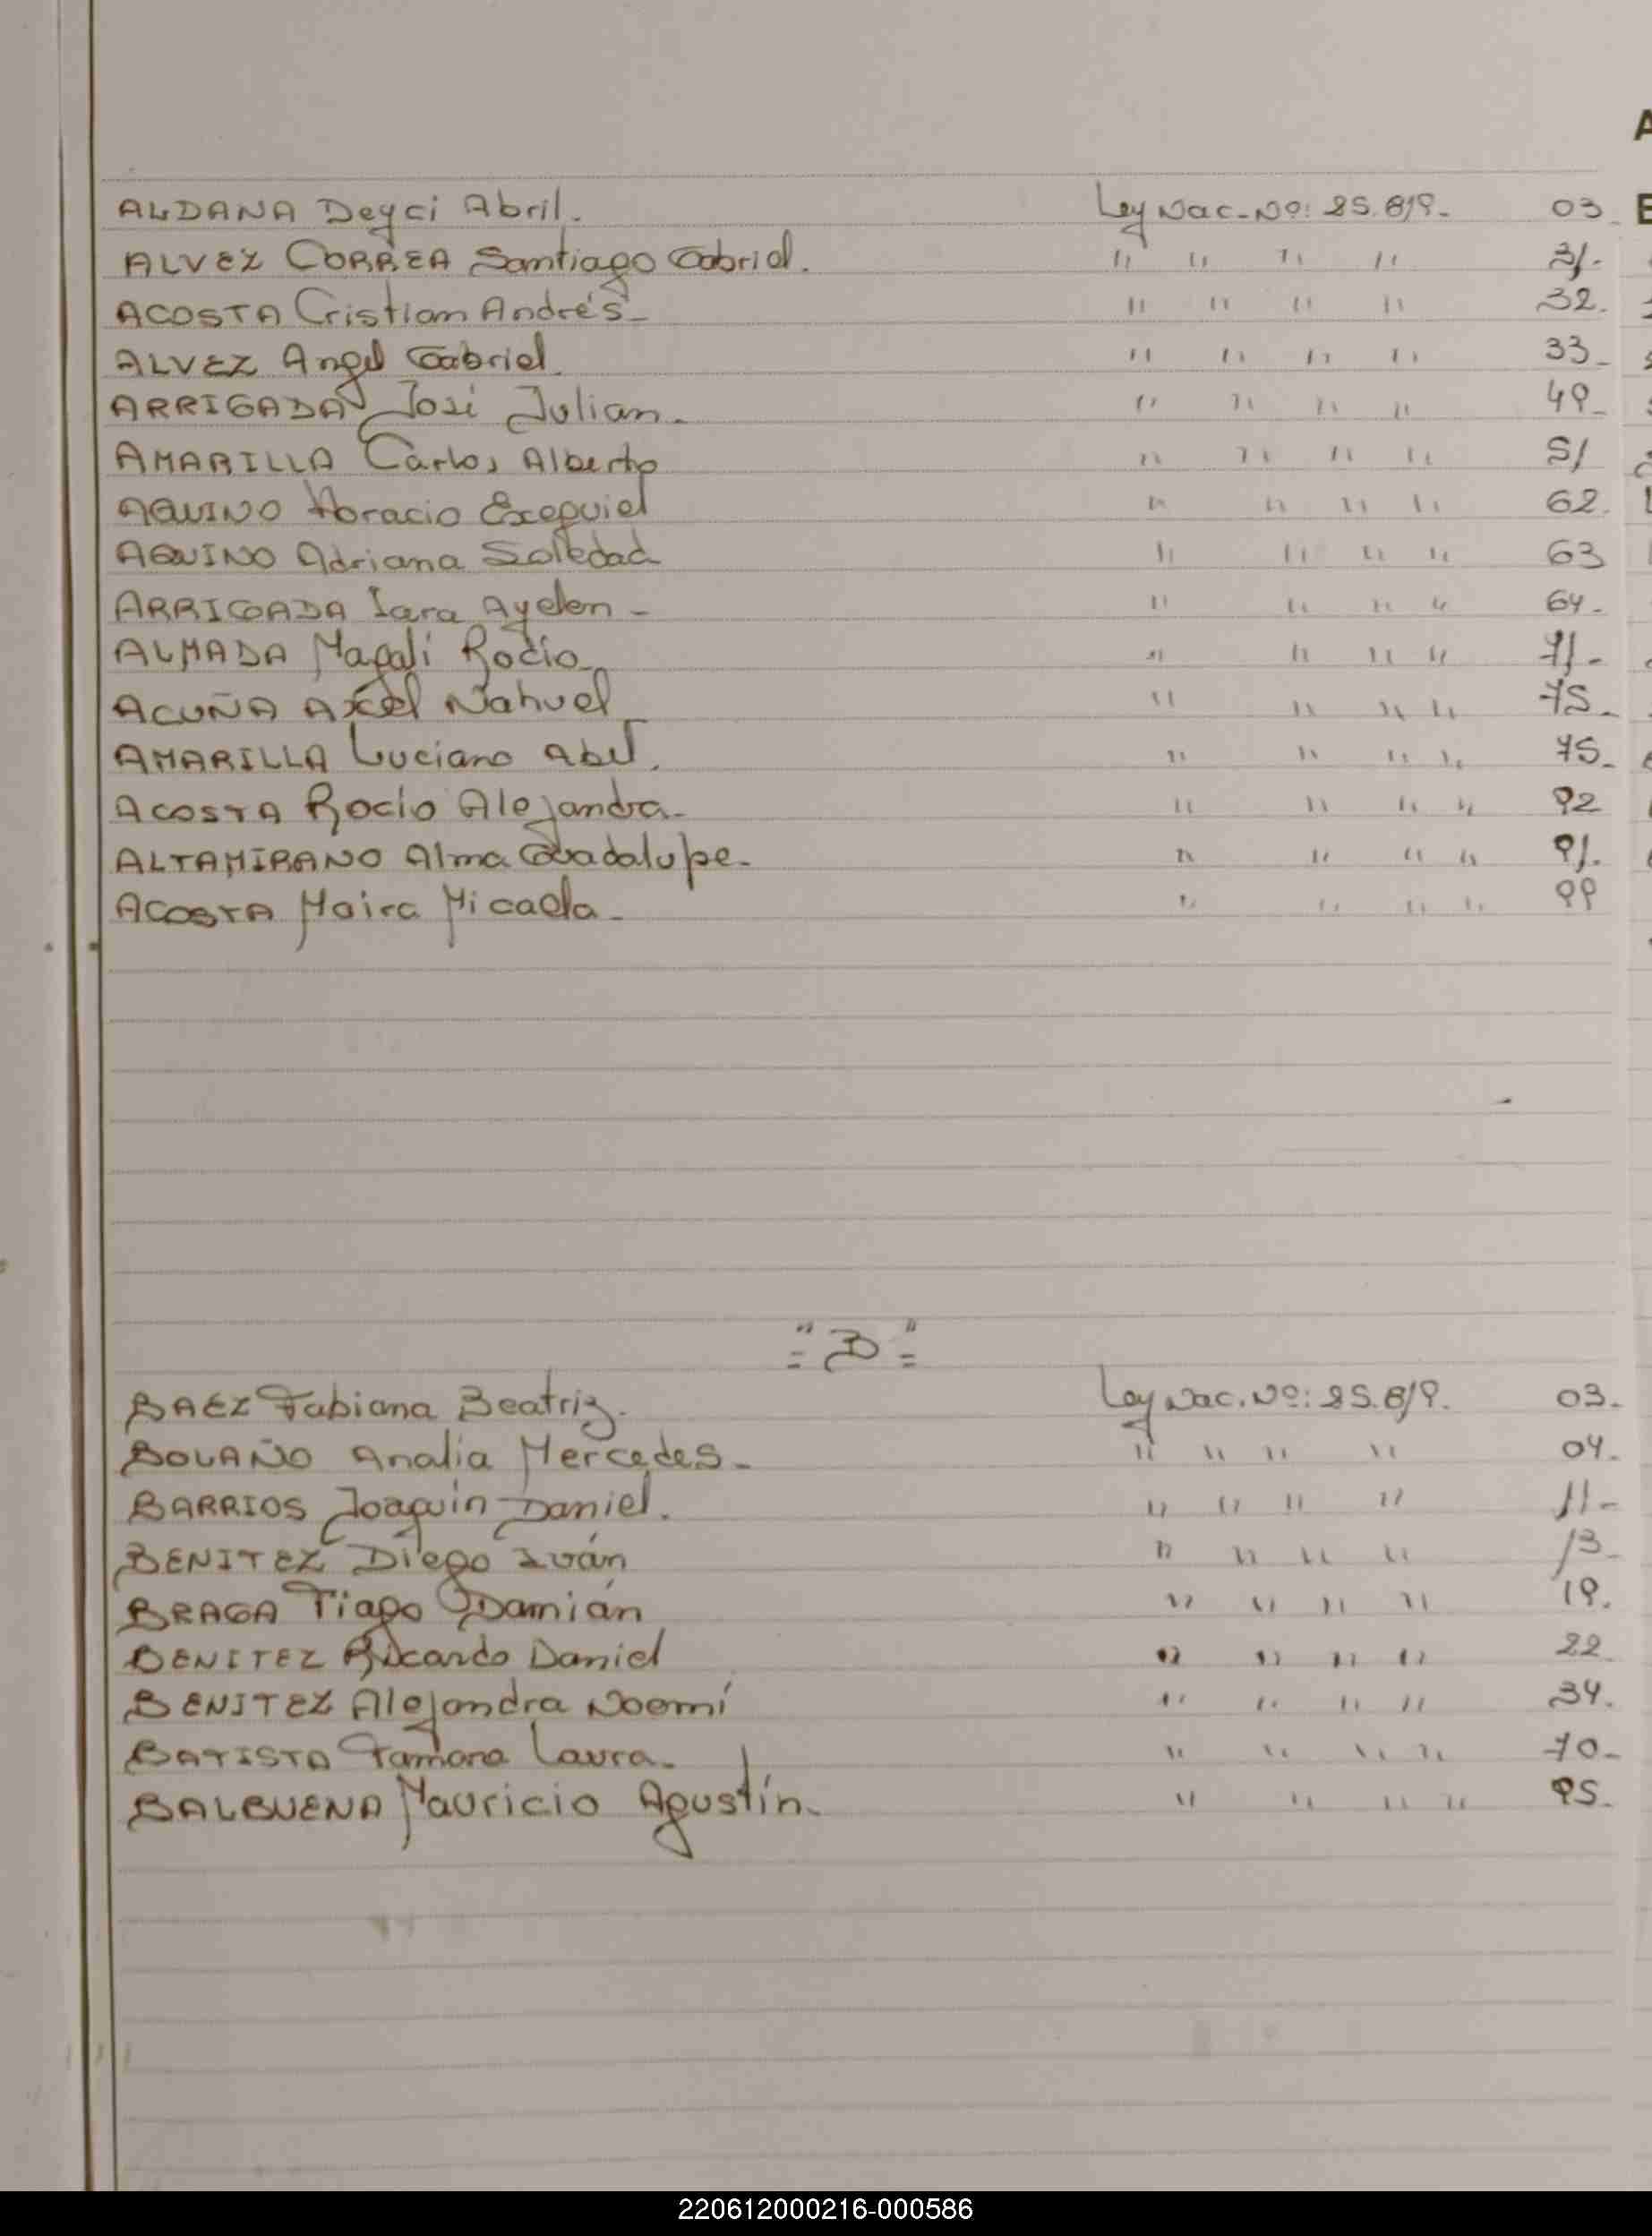 A
ALDANA Deyci Abril. Ley Nac. Nº: 25.819. 03 E
ALVEZ CORREA Santiago Gabriel. " " " " 21.
ACOSTA Cristian Andrés " " " " 32.
ALVEZ Angel Gabriel. " " " " 33
ARRIGADA José Julian. " " " " 49
AMARILLA Carlos Alberto " " " " 51
AQUINO Horacio Exequiel " " " " 62.
AQUINO Adriana Soledad " " " " 63
ARRIGADA Iara Ayelen - " " " " 64.
ALMADA Magali Rocío. " " " " 71.
ACUÑA Axcel Nahuel " " " " 75.
AMARILLA Luciano Abel. " " " " 75.
ACOSTA Rocio Alejandra. " " " " 92
ALTAMIRANO Alma Guadalupe. " " " " 91.
ACOSTA Maira Micaela. " " " " 99
="B"=
BAEZ Fabiana Beatriz. Ley Nac. Nº: 25.819. 03.
BOLAÑO Analia Mercedes. " " " " 04.
BARRIOS Joaquín Daniel. " " " " 11.
BENITEZ Diego Iván " " " " 13
BRAGA Tiago Damián " " " " 19.
BENITEZ Ricardo Daniel " " " " 22.
BENITEZ Alejandra Noemí " " " " 34.
BATISTA Tamara Laura. " " " " 70.
BALBUENA Mauricio Agustín. " " " " 95.
220612000216-000586